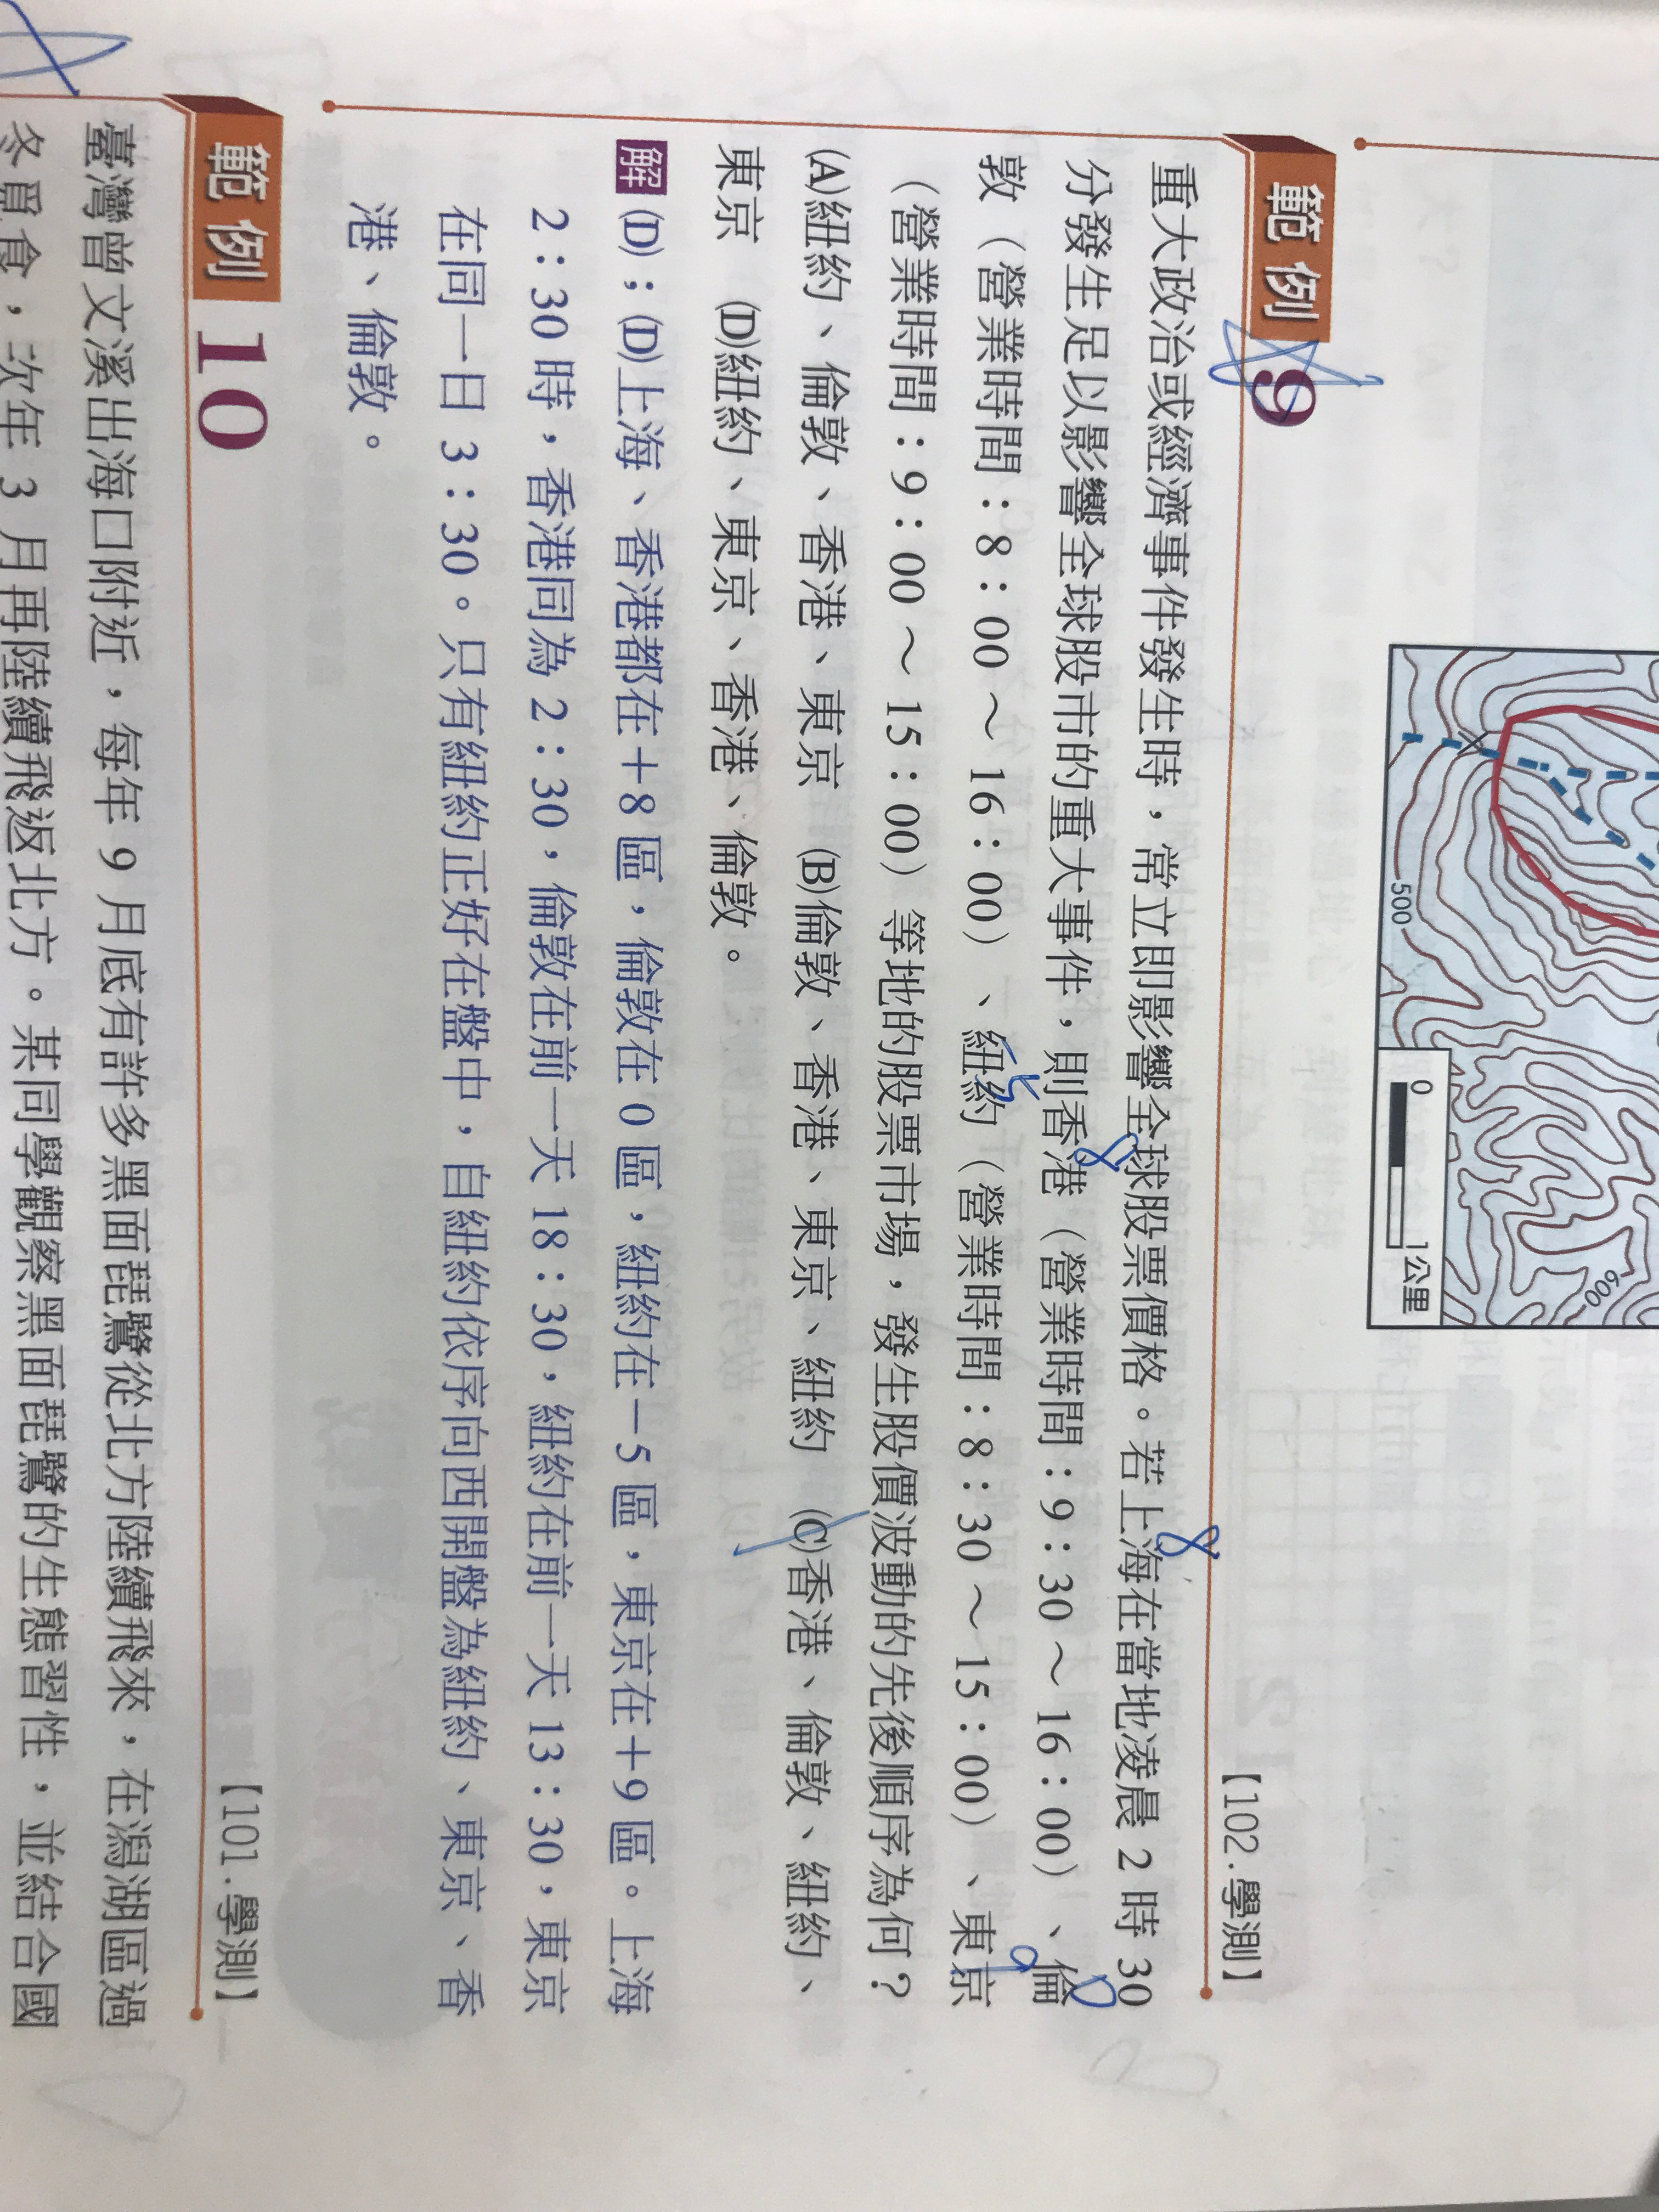 500
600
0 1公里
範例 9 【102.學測】
重大政治或經濟事件發生時，常立即影響全球股票價格。若上海在當地凌晨 2 時 30
分發生足以影響全球股市的重大事件，則香港（營業時間：9：30～16：00）、倫
敦（營業時間：8：00～16：00）、紐約（營業時間：8：30～15：00）、東京
（營業時間：9：00～15：00）等地的股票市場，發生股價波動的先後順序為何？
(A)紐約、倫敦、香港、東京 (B)倫敦、香港、東京、紐約 (C)香港、倫敦、紐約、
東京 (D)紐約、東京、香港、倫敦。
8
8
0
-5
9
解 (D)；(D)上海、香港都在＋8 區，倫敦在 0 區，紐約在－5 區，東京在＋9 區。上海
2：30 時，香港同為 2：30，倫敦在前一天 18：30，紐約在前一天 13：30，東京
在同一日 3：30。只有紐約正好在盤中，自紐約依序向西開盤為紐約、東京、香
港、倫敦。
範例 10 【101.學測】
臺灣曾文溪出海口附近，每年 9 月底有許多黑面琵鷺從北方陸續飛來，在潟湖區過
冬覓食，次年 3 月再陸續飛返北方。某同學觀察黑面琵鷺的生態習性，並結合國